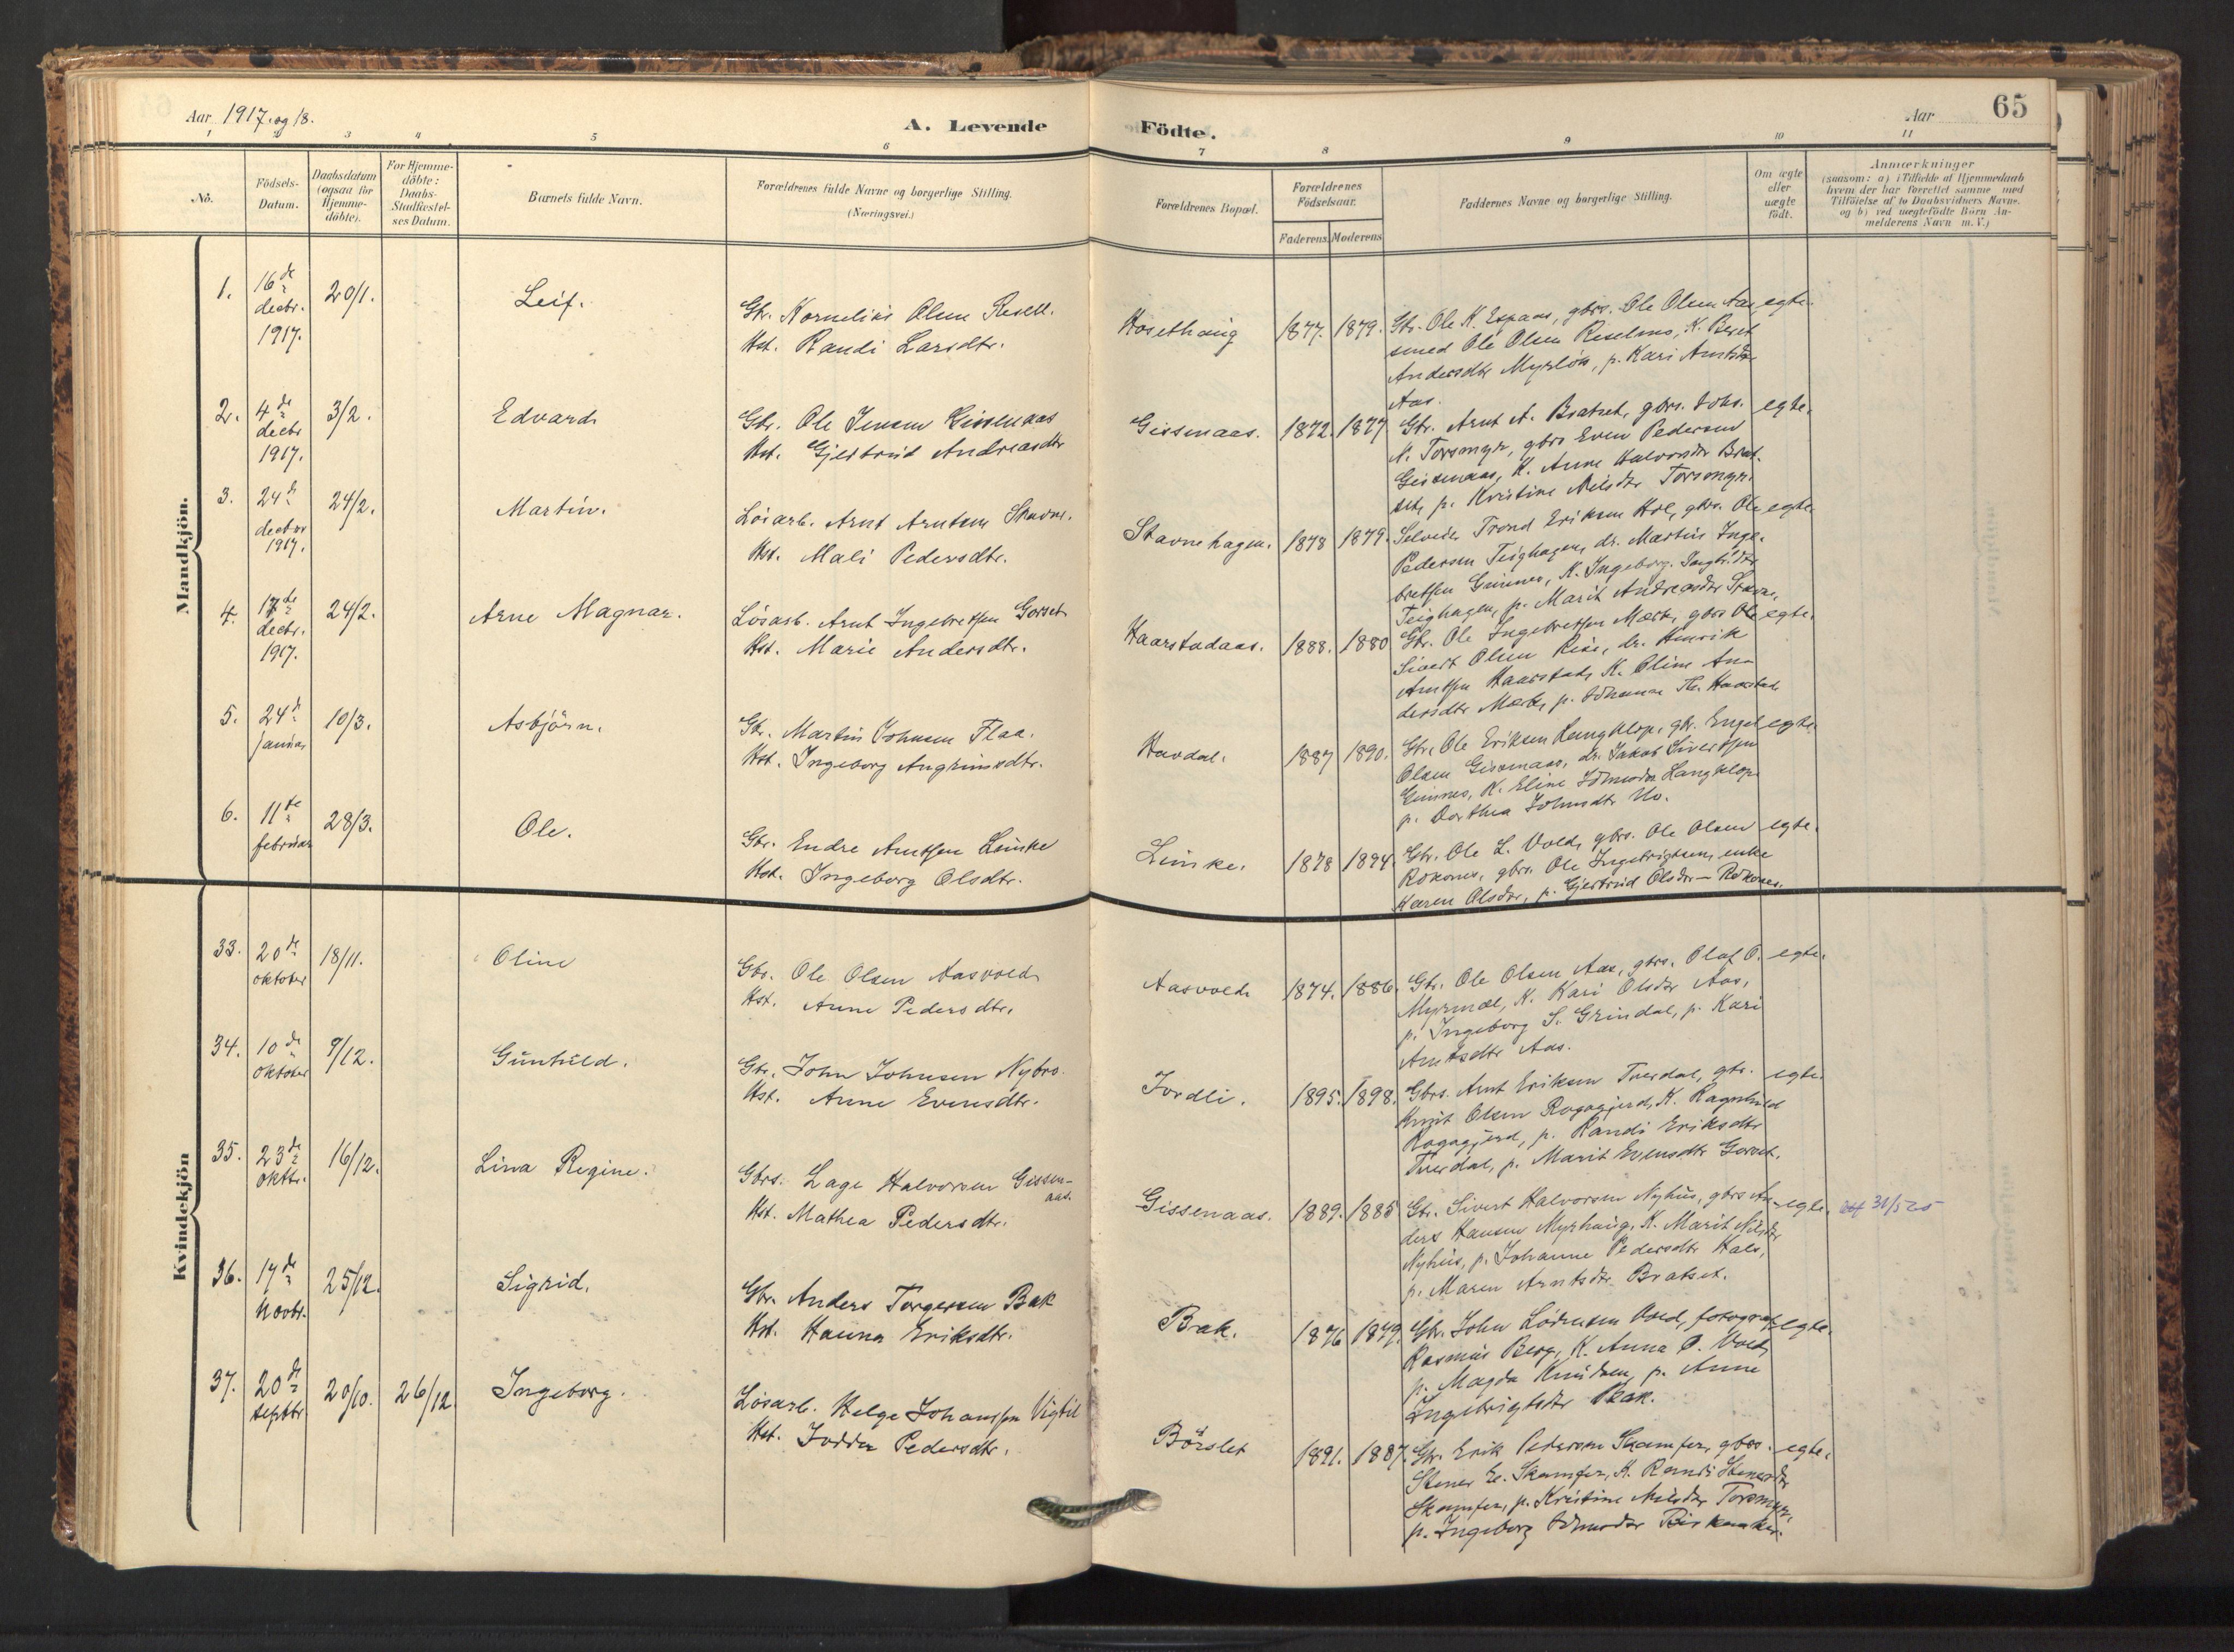 Aar 1917. og 18.
A. Levende Födte.
Aar
65
1 2 3 4 5 6 7 8 9 10 11
No.
Födsels-Datum.
Daabsdatum (ogsaa for Hjemme-döbte).
For Hjemme-döbte: Daabs-Stadfæstel-ses Datum.
Barnets fulde Navn.
Forældrenes fulde Navne og borgerlige Stilling. (Næringsvei.)
Forældrenes Bopæl.
Forældrenes Födselsaar.
Faderens. Moderens
Faddernes Navne og borgerlige Stilling.
Om ægte eller uægte födt.
Anmærkninger
(saasom: a) i Tilfælde af Hjemmedaab hvem der har forrettet samme med Tilföielse af to Daabsvidners Navne. og b) ved uægtefödte Börn An-melderens Navn m.V.)
Mandkjön.
1. 16de decbr. 1917. 20/1. Leif.
Gbr. Kornelius Olsen Resell.
Hst. Randi Larsdtr.
Hosethaug 1877. 1879.
Gbr. Ole K. Espaas, gbrs. Ole Olsen Aas, egte.
smed Ole Olsen Reselmo, K. Beret
Andersdtr Myrlön, p. Kari Arntsdtr
Aas.
2. 4de decbr 1917. 3/2. Edvard
Gbr. Ole Jensen Gissenaas
Hst. Gjertrud Andreasdtr
Gissenaas. 1872. 1877
Gbr. Arnt A. Bratset, gbrs. Johs. egte.
N. Torsmyr, gbrs Even Pedersen
Gissenaas, K. Anne Halvorsdtr Brat-
set, p. Kristine Nilsdtr Torsmyr.
3. 24de decbr 1917. 24/2. Martin.
Løsarb. Arnt Arntsen Stavne.
Hst. Mali Pedersdtr.
Stavnehagen. 1878 1879.
Selveier Trond Eriksen Hol, gbrs. Ole egte.
Pedersen Teighagen, dr. Martin Inge-
bretsen Grimnes, K. Ingeborg Ingbr.dtr
Teighagen, p. Marit Andreasdtr Stavne.
4. 17de decbr. 1917. 24/2. Arne Magnar.
Løsarb. Arnt Ingebretsen Gorset
Hst. Marie Andersdtr.
Haarstadaas. 1888. 1880
Gbr. Ole Ingebretsen Mærk, gbrs Ole egte.
Sivert Olsen Rise, dr. Henrik
Arntsen Haarstad, K. Oline An-
dersdtr Mærk, p. Johanna Th. Haarstad
5. 24de januar 10/3. Asbjörn.
Gbr. Martin Johnsen Flaa.
Hst. Ingeborg Angrimsdtr.
Havdal. 1887 1890.
Gbr. Ole Eriksen Langklop, gbr. Engel egte.
Olsen Gissenaas, dr. Jakob Sivertsen
Grimnes, K. Eline Johnsdtr Langklop
p. Dorthea Johnsdtr Mo.
6. 11te februar 28/3. Ole.
Gbr. Endre Arntsen Linke
Hst. Ingeborg Olsdtr.
Linke. 1878 1894.
Gbr. Ole L. Vold, gbrs. Ole Olsen egte.
Rokones, gbrs. Ole Ingebrigtsen, enke
Karen Olsdtr, p. Gjertrud Olsdtr - Rokones.
Kvindekjön
33. 20de oktober 18/11. Oline
Gbr. Ole Olsen Aasvold
Hst. Anne Pedersdtr.
Aasvold 1874. 1886.
Gbr. Ole Olsen Aas, gbrs. Olaf O. egte.
Myrmæl, K. Kari Olsdtr Aas,
p. Ingeborg S. Grindal, p. Kari
Arntsdtr Aas.
34. 10de oktober 9/12. Gunhild.
Gbr. John Johnsen Nybro.
Hst. Anne Evensdtr.
Jordli. 1895. 1898.
Gbrs. Arnt Eriksen Tverdal, gbr. egte.
Knut Olsen Rogogjerd, K. Ragnhild
Rogogjerd, p. Randi Eriksdtr
Tverdal, p. Marit Evensdtr Gorset.
35. 23de oktbr. 16/12. Lina Regine.
Gbrs. Lage Halvorsen Gissen-
aas.
Hst. Mathea Pedersdtr.
Gissenaas. 1889. 1885
Gbr. Sivert Halvorsen Nyhus, gbrs An- egte.
ders Hansen Myrhaug, K. Marit Nilsdtr
Nyhus, p. Johanne Pedersdtr Hals,
p. Maren Arntsdtr Bratset.
31/5 25
36. 17de Novbr. 25/12. Sigrid.
Gbr. Anders Torgersen Bak
Hst. Hanna Eriksdtr.
Bak. 1876 1879.
Gbr. John Lødensen Vold, fotograf egte.
Rasmus Berg, K. Anna O. Vold,
p. Magda Knudsen, p. Anne
Ingebrigtsdtr Bak.
37. 20de septbr. 20/10. 26/12. Ingeborg.
Løsarb. Helge Johansen Vigtil
Hst. Jodda Pedersdtr.
Börslet 1891. 1887.
Gbr. Erik Pedersen Skamfer, gbrs. egte.
Stener E. Skamfer, K. Randi Stenersdtr
Skamfer, p. Kristine Nilsdtr Torsmyr,
p. Ingeborg Johnsdtr Birkeaker.